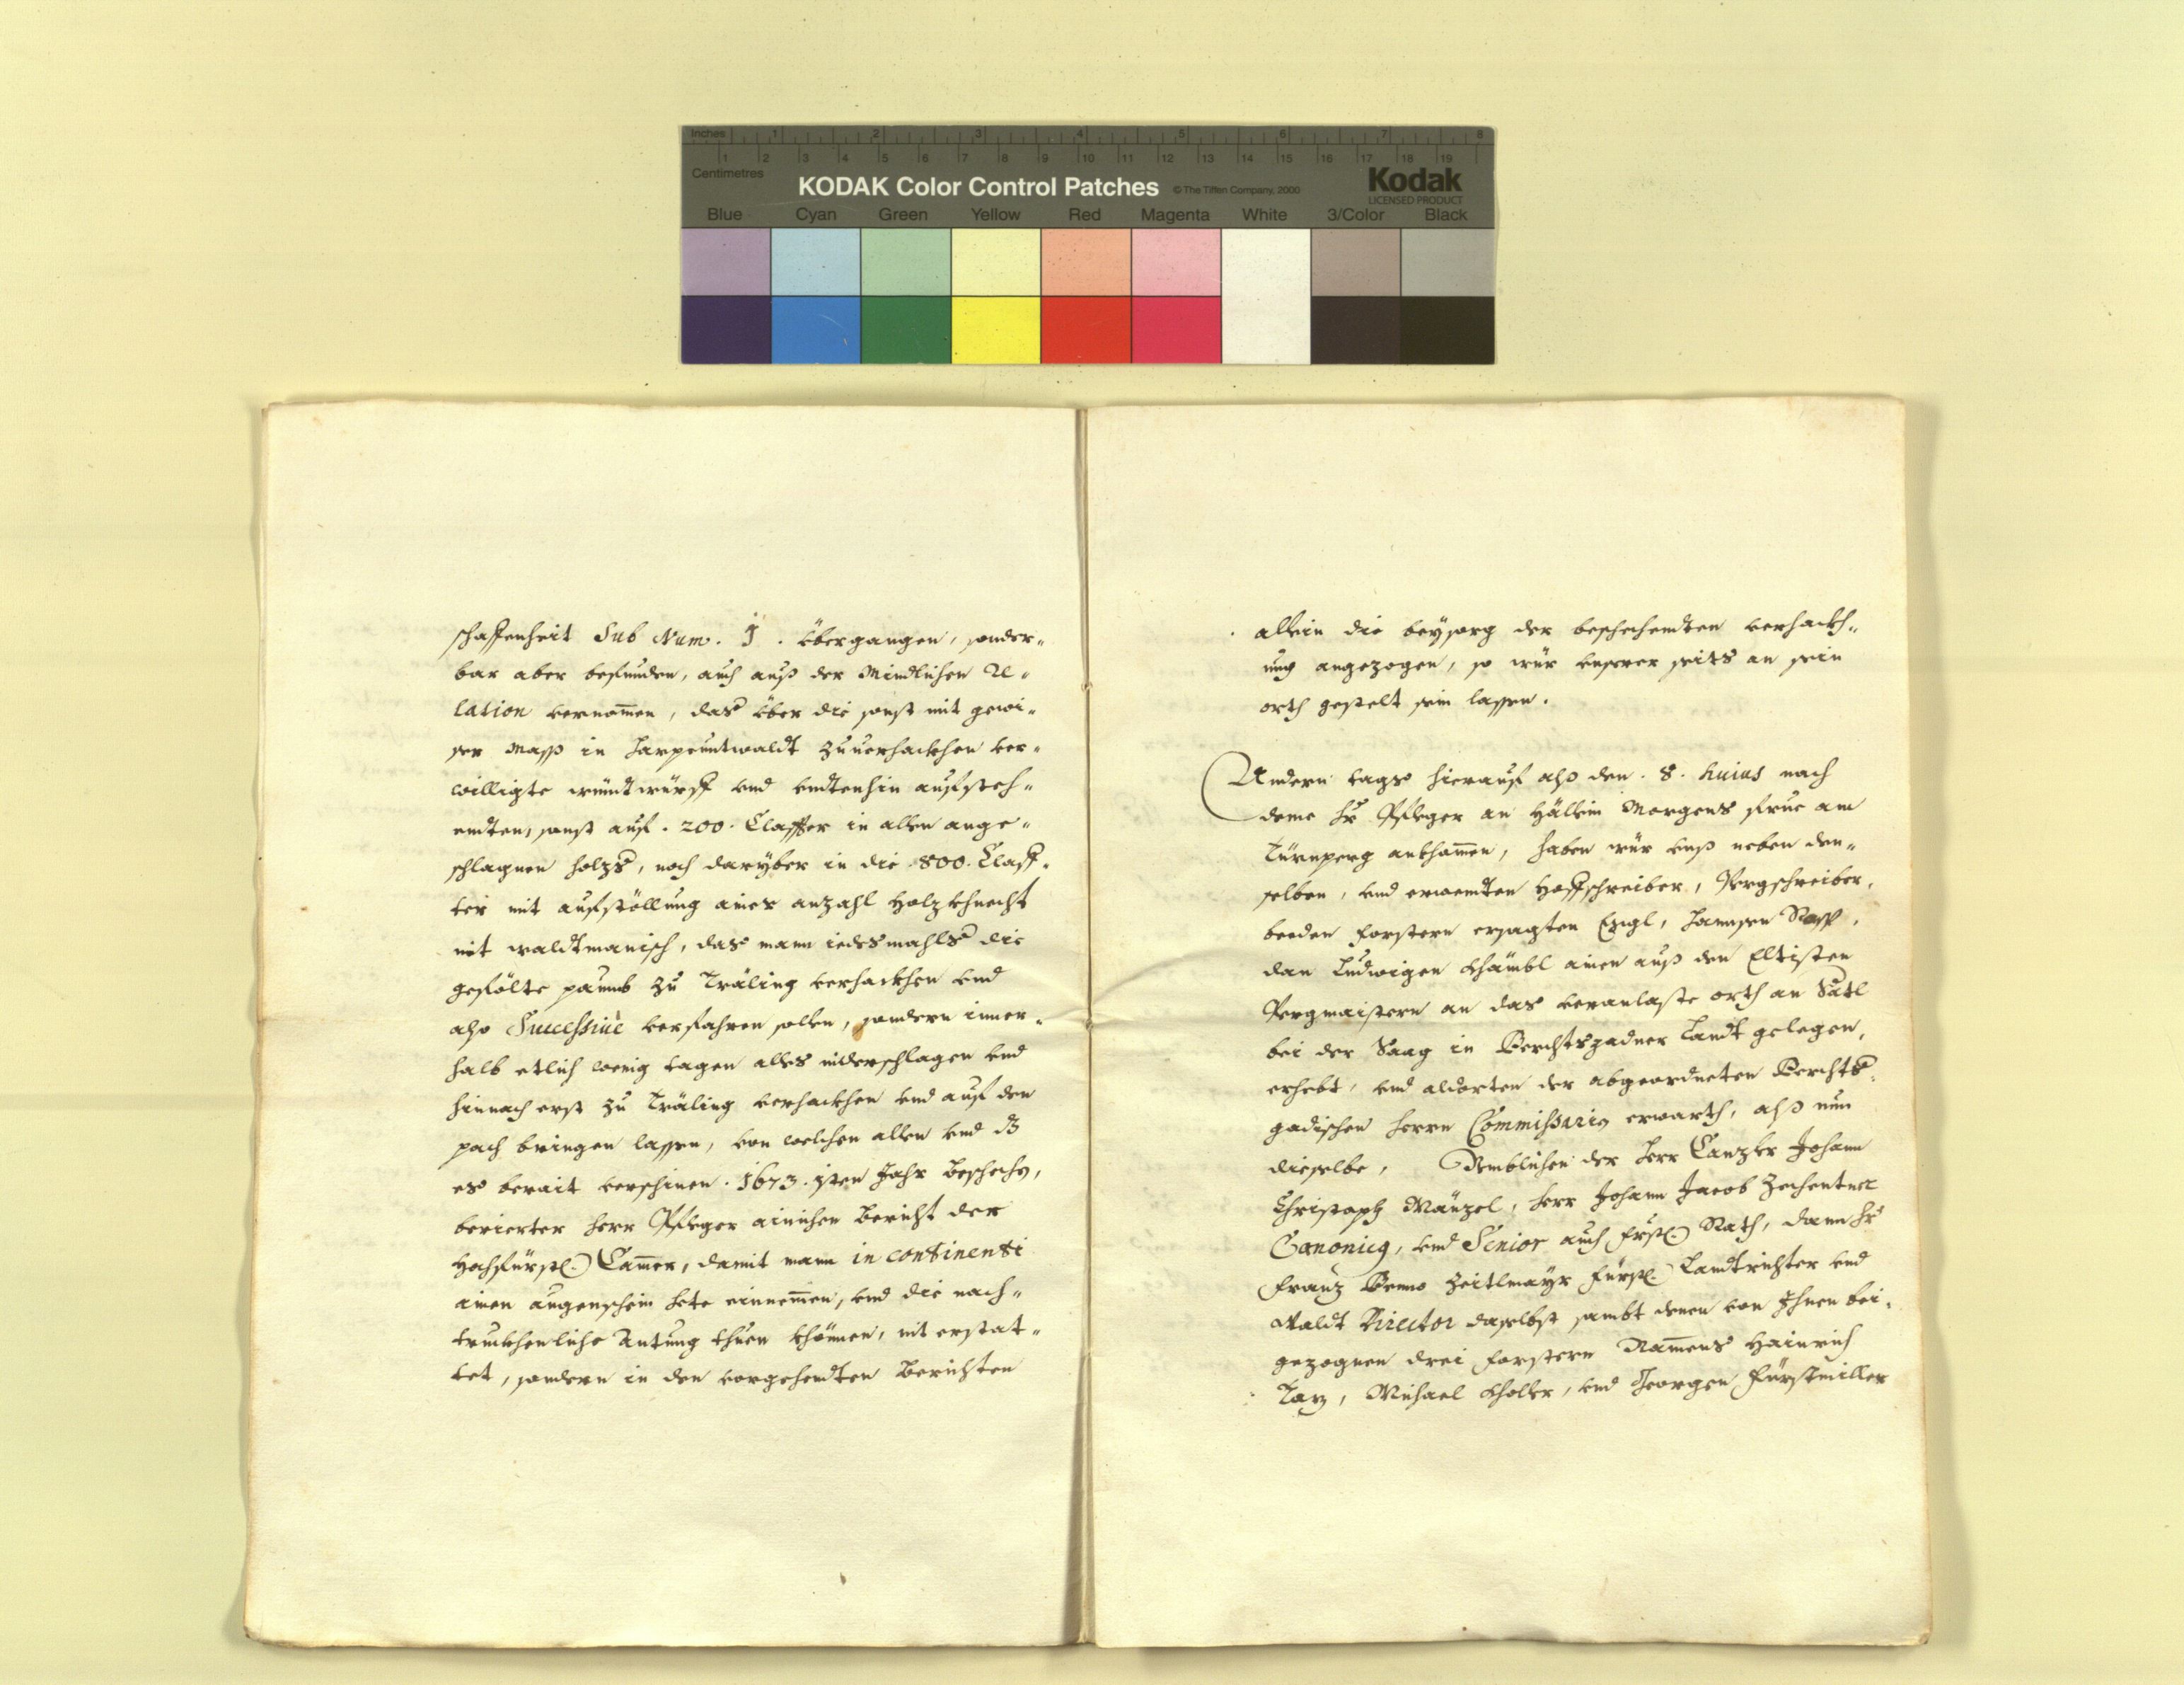 Inches 1 2 3 4 5 6 7 8
1 2 3 4 5 6 7 8 9 10 11 12 13 14 15 16 17 18 19
Centimetres
KODAK Color Control Patches © The Tiffen Company, 2000 Kodak
LICENSED PRODUCT
Blue Cyan Green Yellow Red Magenta White 3/Color Black
schaffenheit Sub Num. 1. übergangen, sonder-
bar aber befunden, auch auß der Mindlichen Re-
lation vernomen, das über die sonst mit gewi-
ser Mass in zuuerhackhen ver-
willigte windtwürff vnd
sonst auf . 200 . Claffter in allen ange-
schlagnen holzs, noch darüber in die 800. Claff-
ter mit aufstöllung ainer anzahl Holzkhnecht
nit waldtmanisch, das mann iedesmahls die
gefölte paumb zu Träling verhackhen vnd
also Successiuè verfahren sollen, sondern inner-
halb etlich wenig tagen alles niderschlagen vnd
hinnach erst zu Träling verhackhen vnd auf den
pach bringen lassen, von welchen allen vnd dz
es berait verschinen . 1673 . isten Jahr beschechen,
berierter Herr Pfleger ainichen Bericht der
Hochfürstl. Camer, damit mann in continenti
ainen augenschein hete einnemen, vnd die nach-
truckhenliche Antung thuen khönnen, nit erstat-
tet, sondern in den vorgehendten Berichten
allein die beysorg der beschehendten verhackh-
ung angezogen, so wür vnserer seits an sein
orth gestelt sein lassen.
Andern tags hierauf alß den . 8. huius nach
deme Hr Pfleger an Hällein Morgens frue am
Türnperg ankhomen, haben wür vnß neben den-
selben, vnd ernenten Hoffschreiber, Pergschreiber,
beeden forstern ersagten Engl, Hannsen Rasp,
dan Ludwigen ainen auß den Eltisten
Pergmaistern an das veranlaste orth an Sätl
bei der Saag in Berchtsgadner Landt gelegen,
erhebt, vnd aldorten der abgeordneten Berchts-
gadischen Herrn Commissarien erwarth, alß nun
dieselbe, Nemblichen der Herr Canzler Johann
Christoph Mänzel, Herr Johann Jacob Zechentner
Canonicus, vnd Senior auch frstl. Rath, dann Hr
Franz Benno Zeitlmayr Fürstl. Landtrichter vnd
Waldt Director daselbst sambt denen von Ihnen bei-
gezognen drei forstern Namens Hainrich
Michael Kholler, vnd Georgen Fürstmiller